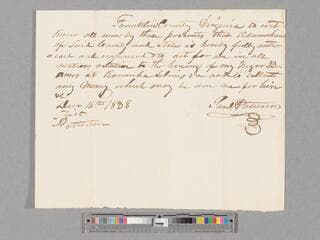 Franklin County Virginia to wit
Know all men by these presents that
of said County and State is hereby fully author
ized and empowered to act for me in all
matters relative to the hireing of my Negro
Amos at Kanawha Salines Va and to collect
any Money which may be due me for hire
&c
Decr 16th 1838
Test
Patterson
Saml Patterson